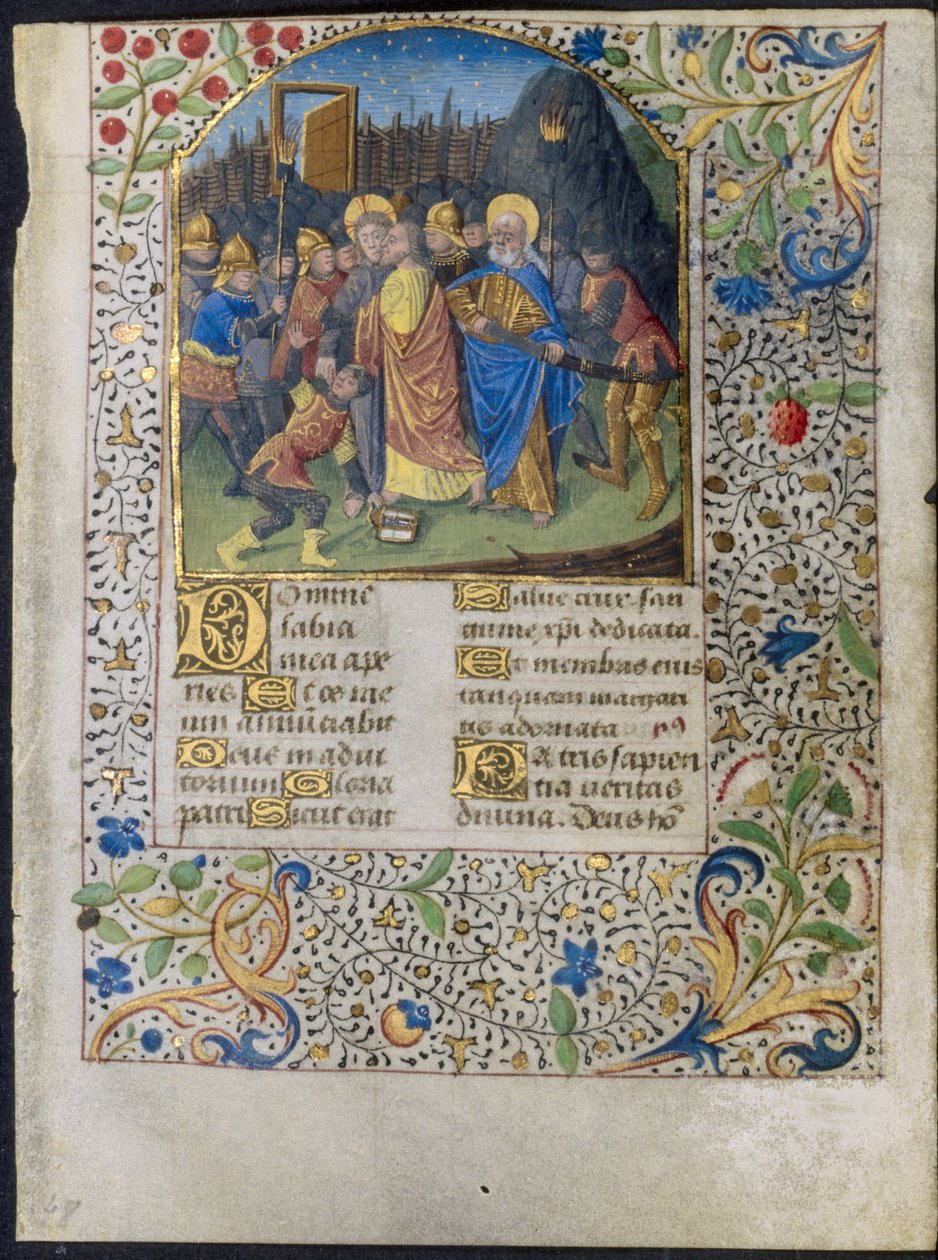 Domine
labia
mea ape
ries Et os me
um annūciabit
Deus in adiu
torium Gloria
patri Sicut erat
Salue crux san
guine xp̄i dedicata.
Et membris eius
tanquam margari
tis adornata
Patris sapien
tia veritas
diuina. Deus hō